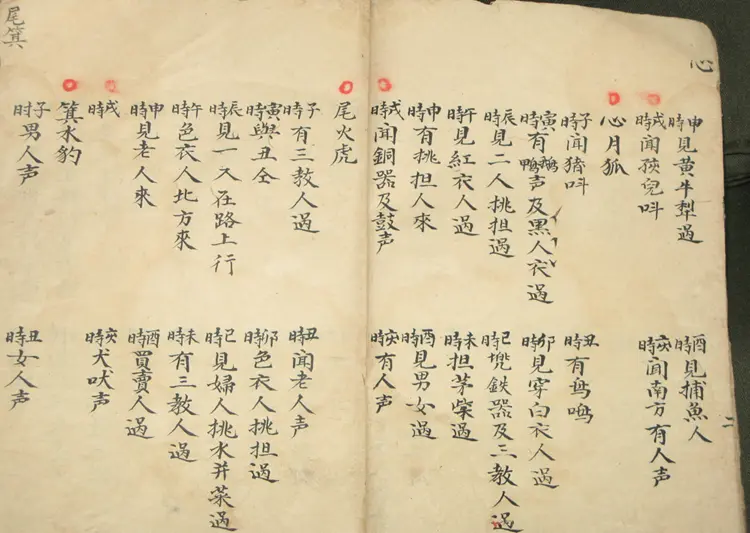 心
申時見黃牛犁過
酉時見捕魚人
戌時聞孩兒呌
亥時聞南方有人声
心月狐
子時聞猪呌
丑時有鸟鳴
寅時有鵝鴨声及黑人衣過
卯時見穿白衣人過
辰時見二人挑担過
巳時兠鉄器及三教人過
午時見紅衣人過
未時担茅柴過
申時有挑担人來
酉時見男女過
戌時聞銅器及鼓声
亥時有人声
尾火虎
子時有三教人過
丑時聞老人声
寅時與丑仝
卯時色衣人挑担過
辰時見一又在路上行
巳時見婦人挑水并菜過
午時色衣人北方來
未時有三教人過
申時見老人來
酉時買賣人過
戌時
亥時犬吠声
箕水豹
子时男人声
丑時女人声
尾箕
二